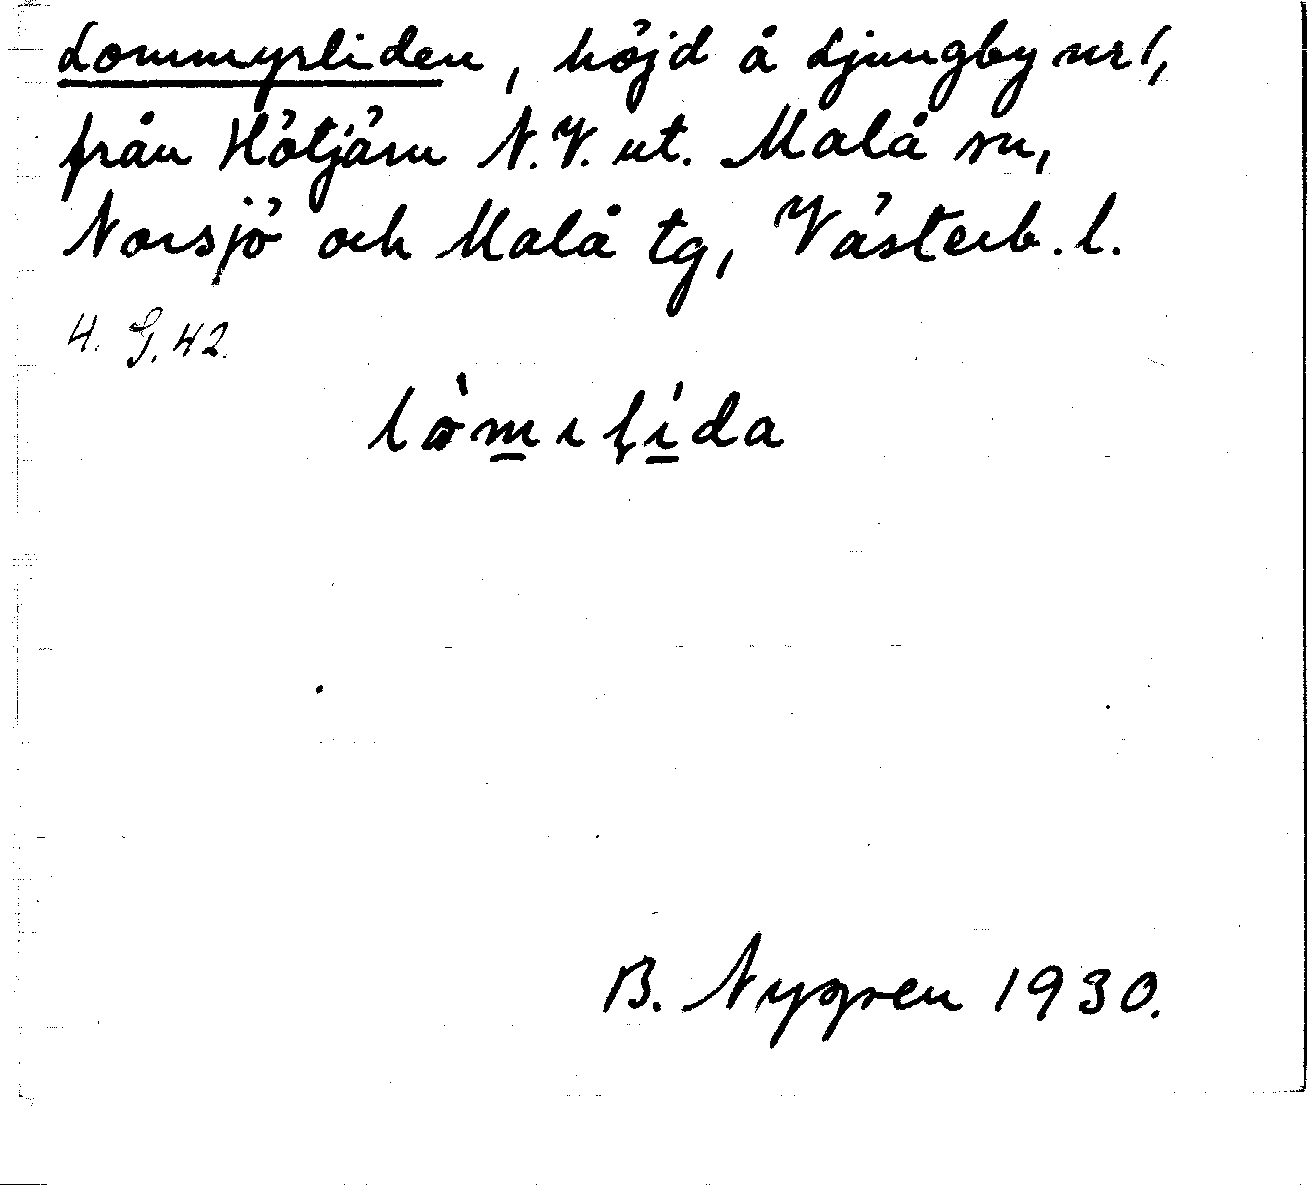 Lommyrliden, höjd å Ljungby nr 1,
från Hötjärn N.V. ut. Malå sn,
Norsjö och Malå tg, Västerb. l.
H. G. 42.
lòmılída
B. Nygren 1930.